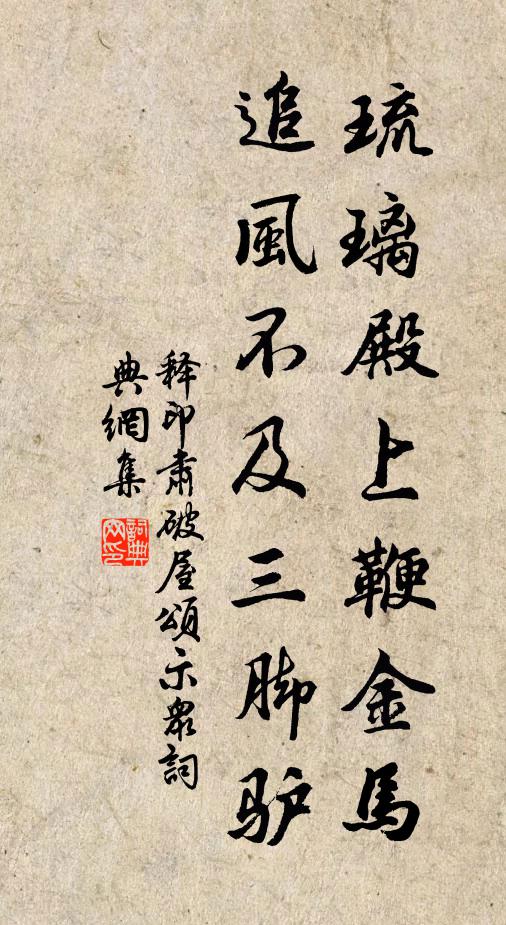 琉璃殿上鞭金馬
追風不及三脚驴
释印肃破屋頌示衆詞
典網集
詞典網印